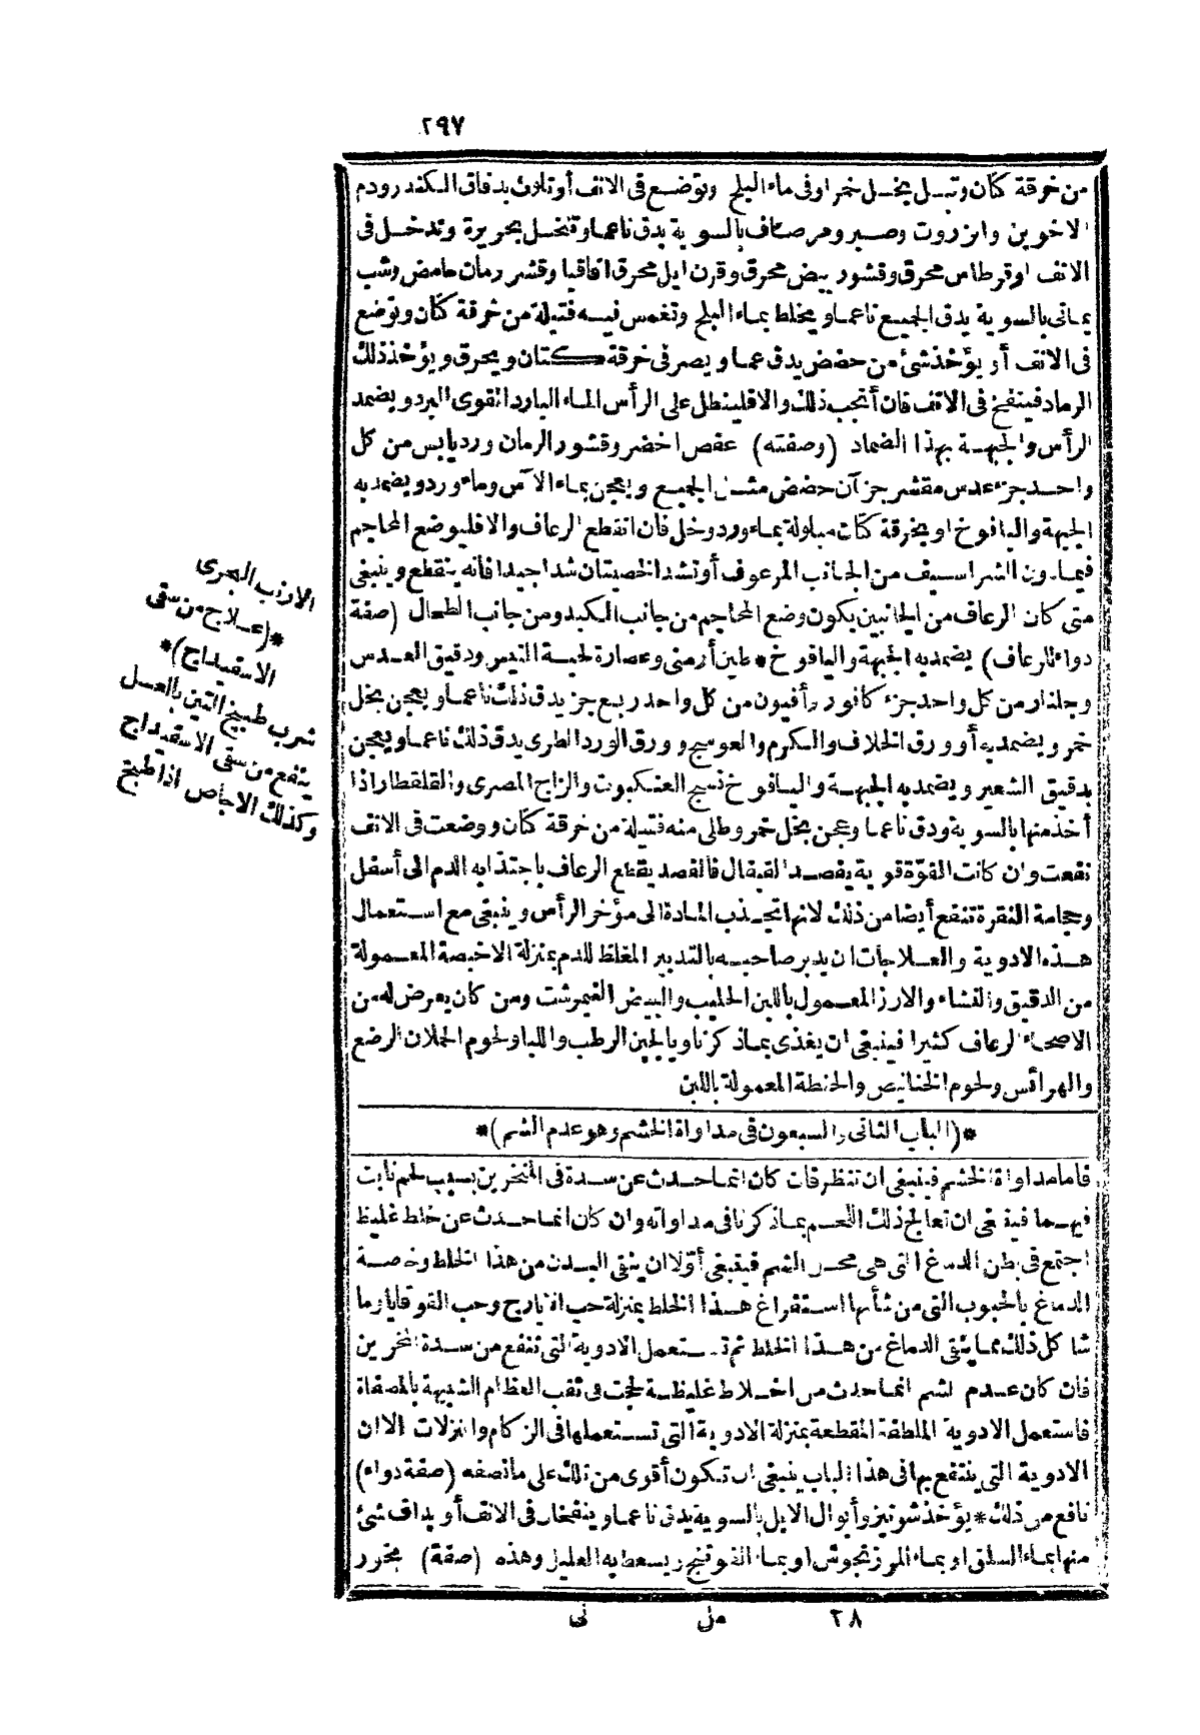 ٢٩٧
من خرقة كتان وتبل بخل خمر اوفى ماء البلح وتوضع فى الانف أو تلاث بدقاق الكندر ودم
الاخوين وانزروت وصبر ومر صاف بالسوية يدق ناعما وتنخل بحريرة وتدخل فى
الانف او قرطاس محرق وقشور بيض محرق وقرن ايل محرق اقاقيا وقشر رمان حامض وشب
يمانى بالسوية يدق الجميع ناعما ويخلط بماء البلح وتغمس فيه فتيلة من خرقة كتان وتوضع
فى الانف أو يؤخذ شئ من حضض يدق عما ويصر فى خرقة كتان ويحرق ويؤخذ ذلك
الرماد فينفخ فى الانف فان أنجب ذلك والا فلينطل على الرأس الماء البارد القوى البرد ويضمد
الرأس والجبهة بهذا الضماد (وصفته) عفص اخضر وقشور الرمان ورد يابس من كل
واحد جزء عدس مقشر جزآن حضض مثل الجميع ويعجن بماء الآس وماء ورد ويضمد به
الجبهة واليافوخ او بخرقة كتان مبلولة بماء ورد وخل فان انقطع الرعاف والا فليوضع المحاجم
فيما دون الشراسيف من الجانب المرعوف أو تشد الخصيتان شدا جيدا فانه ينقطع وينبغى
متى كان الرعاف من الجانبين يكون وضع المحاجم من جانب الكبد ومن جانب الطحال (صفة
دواء للرعاف) يضمد به الجبهة واليافوخ * طين أرمنى وعصارة لحية التيس ودقيق العدس
وجلنار من كل واحد جزء كافور وأفيون من كل واحد ربع جزء يدق ذلك ناعما ويعجن بخل
خمر ويضمد به أو ورق الخلاف والكرم والعوسج وورق الورد الطرى يدق ذلك ناعما ويعجن
بدقيق الشعير ويضمد به الجبهة واليافوخ نسج العنكبوت والزاج المصرى والقلقطار اذا
أخذ منها بالسوية ودق ناعما وعجن بخل خمر وطلى منه فتيلة من خرقة كتان ووضعت فى الانف
نفعت وان كانت القوّة قوية يفصد القيفال فالفصد يقطع الرعاف باجتذابه الدم الى أسفل
وحجامة النقرة تنفع أيضا من ذلك لانها تجذب المادة الى مؤخر الرأس وينبغى مع استعمال
هذه الادوية والعلاجات ان يدبر صاحبه بالتدبير المغلظ للدم بمنزلة الاخبصة المعمولة
من الدقيق والنشاء والارز المعمول باللبن الحليب والبيض النيمرشت ومن كان يعرض له من
الاصحاء الرعاف كثيرا فينبغى ان يغذى بما ذكرنا وبالجبن الرطب واللبا ولحوم الحملان الرضع
والهرائس ولحوم الخنانيص والحنطة المعمولة باللبن
*(الباب الثانى والسبعون فى مداواة الخشم وهو عدم الشم)*
فاما مداواة الخشم فينبغى ان تنظر فان كان انما حدث عن سدة فى المنخرين بسبب لحم نابت
فيهما فينبغى ان تعالج ذلك اللحم بما ذكرنا فى مداواته وان كان انما حدث عن خلط غليظ
اجتمع فى بطن الدماغ التى هى محس الشم فينبغى أوّلا ان ينقى البدن من هذا الخلط وخاصة
الدماغ بالحبوب التى من شأنها استفراغ هذا الخلط بمنزلة حب الايارج وحب القوقايا وما
شاكل ذلك مما ينقى الدماغ من هذا الخلط ثم تستعمل الادوية التى تنفع من سدة المنخرين
فان كان عدم الشم انما حدث من اخلاط غليظة لحجت فى ثقب العظام الشبيهة بالمصفاة
فاستعمل الادوية الملطفة المقطعة بمنزلة الادوية التى تستعملها فى الزكام والنزلات الا ان
الادوية التى ينتفع بها فى هذا الباب ينبغى ان تكون أقوى من تلك على ما نصفه (صفة دواء)
نافع من ذلك * يؤخذ شونيز وأبوال الابل بالسوية يدق ناعما وينفخان فى الانف أو يداف شئ
منها بماء السلق او بماء المرزنجوش او بماء الفوتنج ويسعط به العليل وهذه (صفة) بخور
٢٨ مل نى
الارنب البحرى
*(علاج من سقى
الاسفيداج)*
شرب طبيخ التين بالعسل
ينفع من سقى الاسفيداج
وكذلك الاجاص اذا طبخ